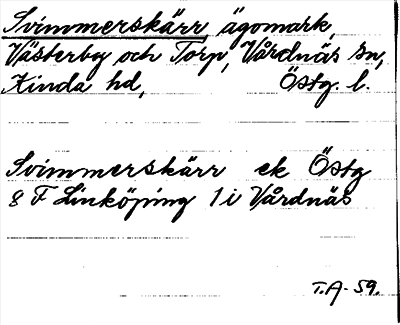 Svimmerskärr ägomark,
Västerby och Torp, Vårdnäs sn,
Kinda hd, Östg. l.
Svimmerskärr ek Östg
8 F Linköping 1 i Vårdnäs
T.A. 59.